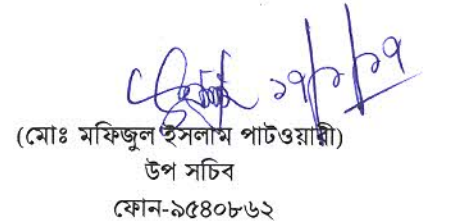 ১৭/১/১৭
(মোঃ মফিজুল ইসলাম পাটওয়ারী)
উপ সচিব
ফোন-৯৫৪০৮৬২